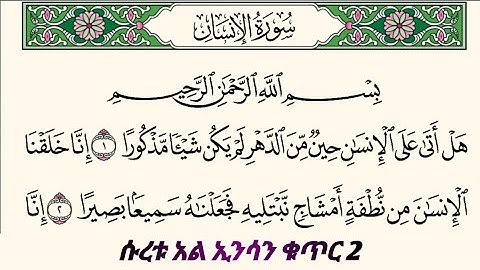 سُورَةُ الإِنسَان
بِسْمِ اللَّهِ الرَّحْمَٰنِ الرَّحِيمِ
هَلْ أَتَىٰ عَلَى الْإِنسَٰنِ حِينٌ مِّنَ الدَّهْرِ لَمْ يَكُن شَيْـًٔا مَّذْكُورًا ١ إِنَّا خَلَقْنَا
الْإِنسَٰنَ مِن نُّطْفَةٍ أَمْشَاجٍ نَّبْتَلِيهِ فَجَعَلْنَٰهُ سَمِيعًۢا بَصِيرًا ٢ إِنَّا
ሱረቱ አል ኢንሳን ቁጥር 2